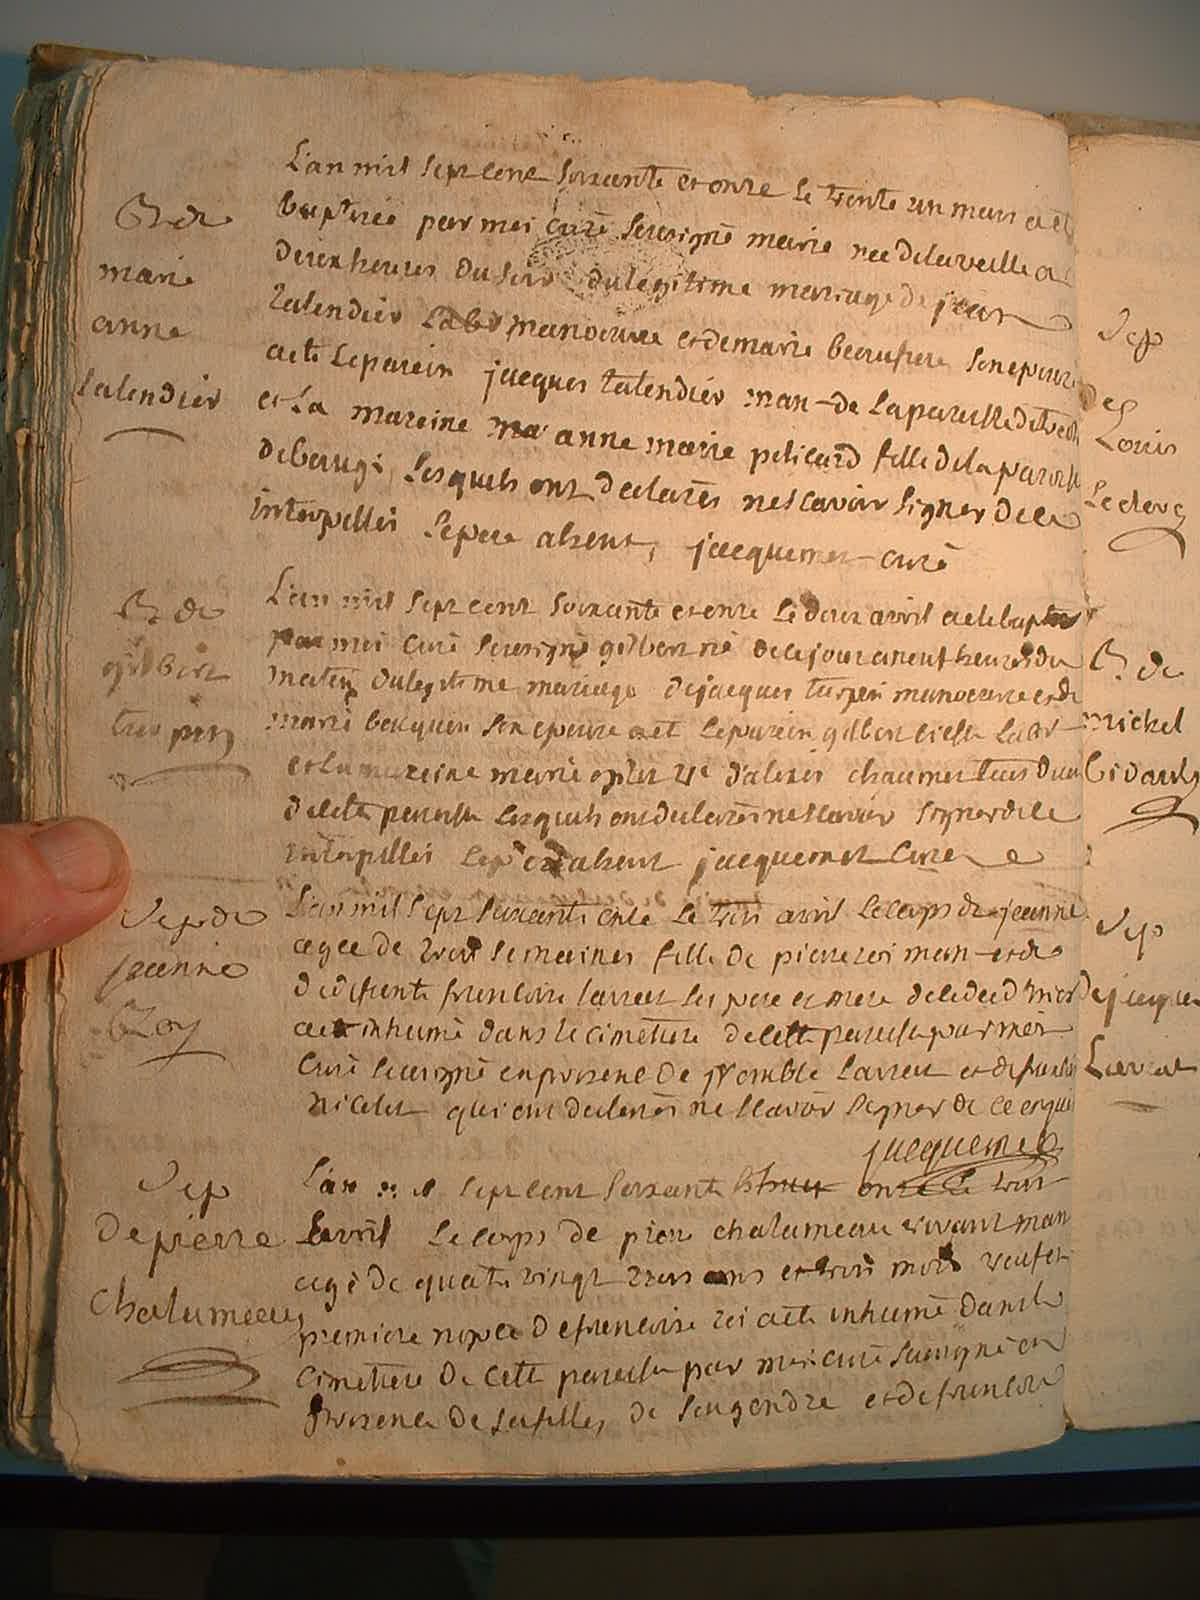 L'an mil sept cent soixante et onze le trente un mars a eté
B. de
baptisée par moi curé soussigné marie née de la veille a
marie
deux heures du soir du legitime mariage de jean
anne
talendier manoeuvre et de marie son epouse
talendier
a eté le parein jacques talendier man- de la paroisse de
et la mareine anne marie pelicard fille de la paroisse
de baugi, lesquels ont declarés ne scavoir signer de ce
interpellés le pere absent, jacquemet curé
B. de
L'an mil sept cent soixante et onze le deux avril a eté baptisé
gilbert
par moi curé soussigné gilbert né de ce jour a neuf heures du
turpin
matin du legitime mariage de jacques turpin manoeuvre et de
marie son epouse a eté le parein gilbert
et la mareine marie d'alexis
de cette paroisse lesquels ont declarés ne scavoir signer de ce
interpellés le pere absent jacquemet curé
Sep de
L'an mil sept soixante onze le trois avril le corps de jeanne
jeanne
agée de trois semaines fille de pierre roi man- et de
Roy
de defunte francoise laureut ses pere et mere
a eté inhumé dans le cimetiere de cette paroisse par moi
curé soussigné en presence de laureut et de
nicolet qui ont declarés ne scavoir signer de ce enquis
jacquemet
Sep
L'an mil sept cent soixante onze le trois
de pierre
avril le corps de piere chalumeau vivant man
chalumeau
agé de quatre vingt trois ans et trois mois veuf en
premiere nopce de francoise roi a eté inhumé dans le
cimetiere de cette paroisse par moi curé soussigné en
presence de ses filles, de son gendre et de francois
Sep
de
Louis
Leclerc
B. de
michel
Sep
de jacques
Laureut